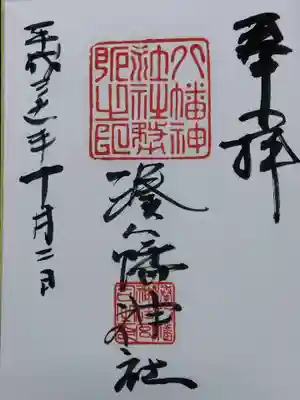 奉拝
八幡神
社社務
所之印
湊八幡神社
平成 年十月二日